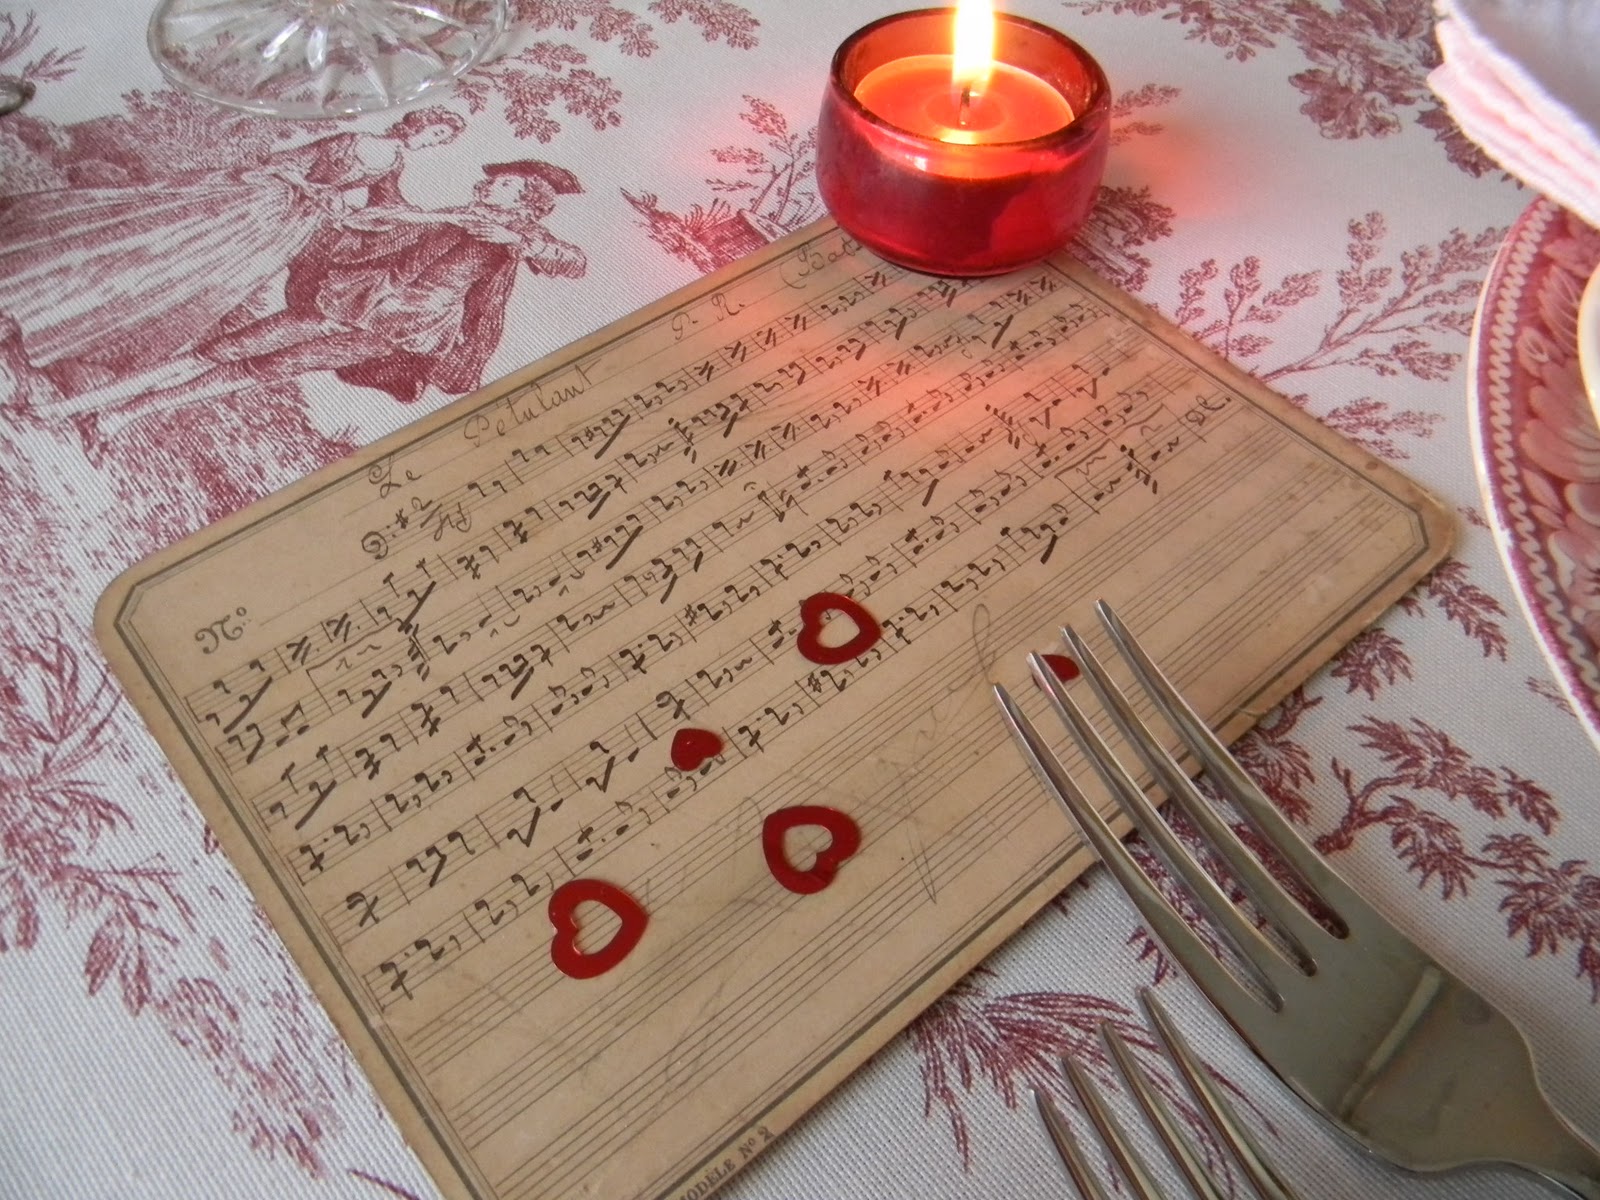 Le Pétulant P. R. (Bat
N.º
MODÈLE Nº 2